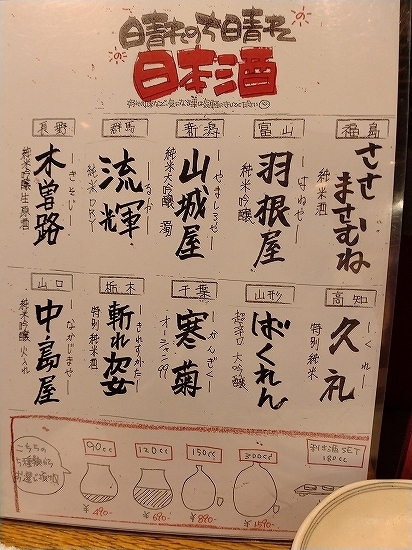 晴れのち晴れの
日本酒
福島
ささまさむね
純米酒
富山
羽根屋
はねや
純米吟醸
新潟
山城屋
やましろや
純米大吟醸 濁
群馬
流輝
るか
純米DRY
長野
木曽路
きそじ
純米吟醸生原酒
高知
久礼
くれ
特別純米
山形
ばくれん
超辛口 大吟醸
千葉
寒菊
かんぎく
オーシャン99
栃木
斬れ姿
きれすがた
特別純米酒
山口
中島屋
なかじまや
純米吟醸 火入れ
こちらの
5種類から
お選び頂け
90cc
¥490-
120cc
¥690-
150cc
¥890-
300cc
¥1590-
利き酒SET
180cc